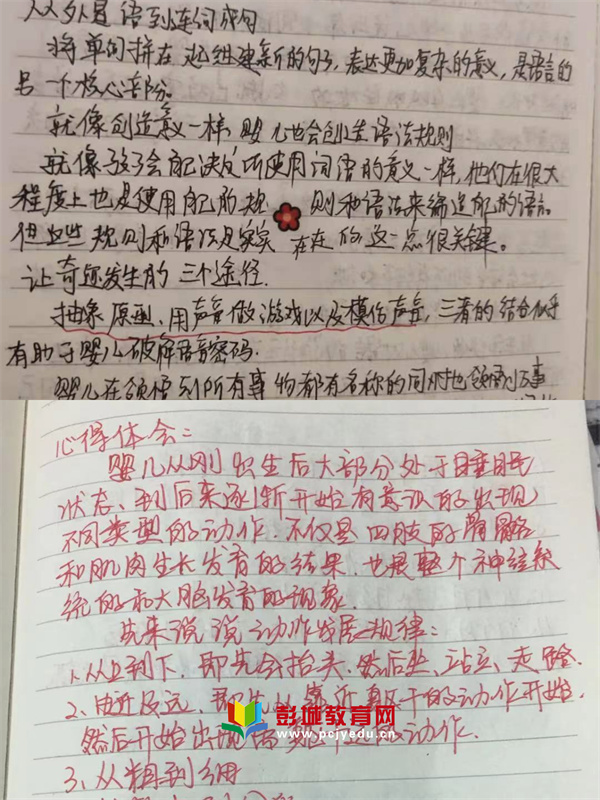 从外星语到连词成句
将单词拼在一起组建新的句子，表达更加复杂的意义，是语言的
另一个核心部分。
就像创造意义一样，婴儿也会创生语法规则
就像孩子会自己决定所使用词语的意义一样，他们在很大
程度上也是使用自己的规则和语法来编造自己的语言。
但这些规则和语法是实实在在的这一点很关键。
让奇迹发生的三个途径.
抽象原型、用声音做游戏以及模仿声音，三者的结合似乎
有助于婴儿破解语言密码.
婴儿在领悟到所有事物都有名称的同时也领悟到万事
心得体会：
婴儿从刚出生后大部分处于睡眠
状态、到后来逐渐开始有意识的出现
不同类型的动作.不仅是四肢的骨骼
和肌肉生长发育的结果.也是整个神经系
统的和大脑发育的现象.
先来说说动作发展规律：
1.从上到下.即先会抬头.然后坐、站立、走路.
2、由近及远.即先从靠近躯干的动作开始.
然后开始出现远离躯干的动作.
3、从粗到细
彭城教育网
www.pcjyedu.cn